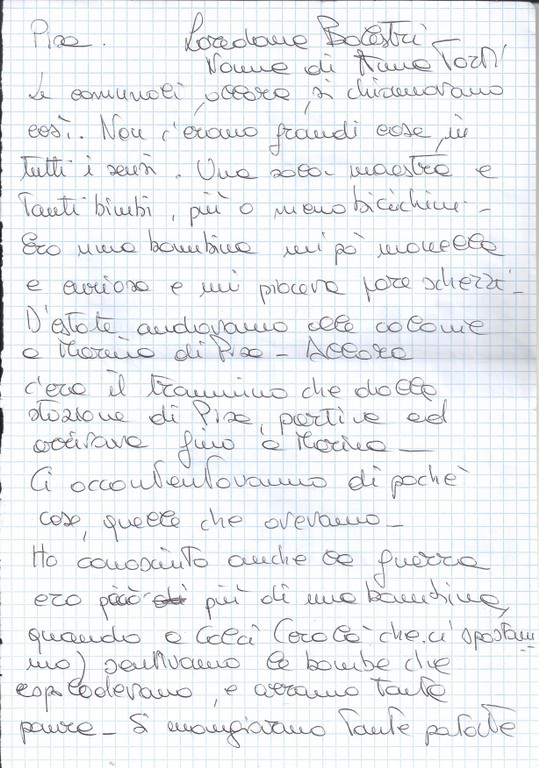 Pisa. Loredana Balestri
Nonna di Anna Torti
Le comunali, allora, si chiamavano
così. Non c'erano grandi cose, in
tutti i sensi. Una sola maestra e
tanti bimbi, più o meno bicichini -
Ero una bambina un pò monella
e curiosa e mi piaceva fare scherzi -
D'estate andavamo alle colonie
a Marina di Pisa - Allora
c'era il trammino che dalla
stazione di Pisa, partiva ed
arrivava fino a Marina -
Ci accontentavamo di poche
cose, quelle che avevamo -
Ho conosciuto anche la guerra
ero più di una bambina,
quando a Calci (era là che ci spostam
mo) sentivamo le bombe che
esplodevano, e avevamo tanta
paura - Si mangiavano tante patate